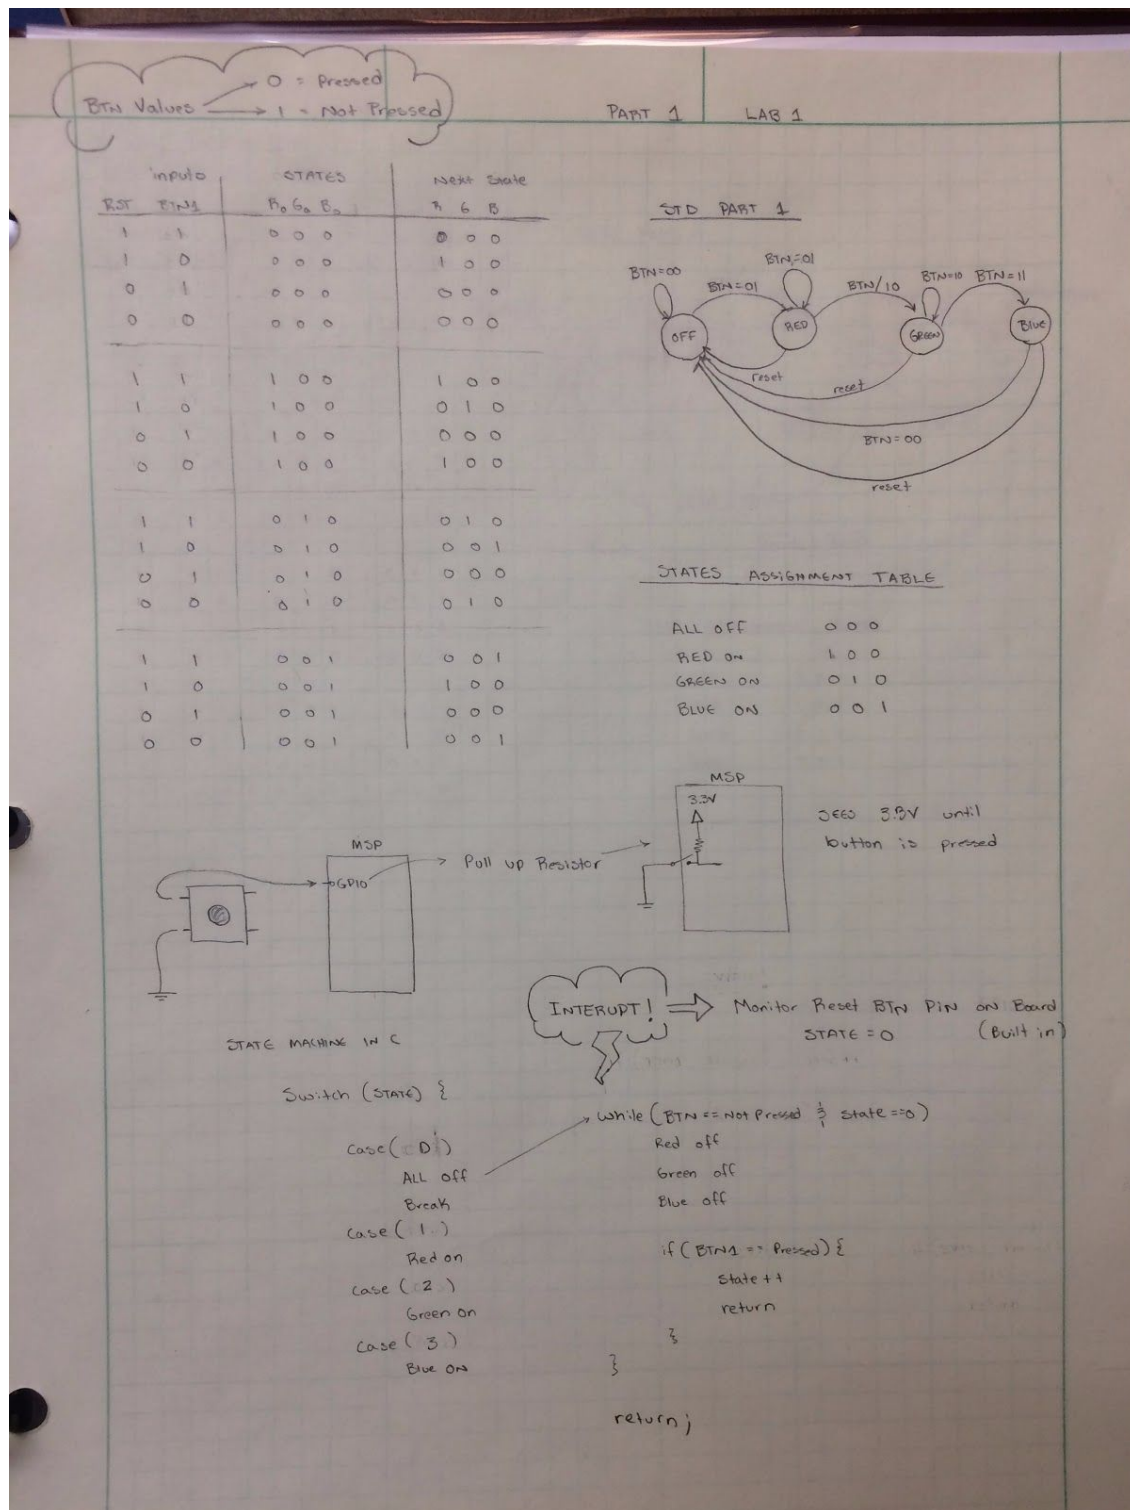 BTN Values → 0 = Pressed
→ 1 = Not Pressed
PART 1 LAB 1
inputs STATES Next State
RST BTN1 R₀ G₀ B₀ R G B
1 1 0 0 0 0 0 0
1 0 0 0 0 1 0 0
0 1 0 0 0 0 0 0
0 0 0 0 0 0 0 0
1 1 1 0 0 1 0 0
1 0 1 0 0 0 1 0
0 1 1 0 0 0 0 0
0 0 1 0 0 1 0 0
1 1 0 1 0 0 1 0
1 0 0 1 0 0 0 1
0 1 0 1 0 0 0 0
0 0 0 1 0 0 1 0
1 1 0 0 1 0 0 1
1 0 0 0 1 1 0 0
0 1 0 0 1 0 0 0
0 0 0 0 1 0 0 1
STD PART 1
BTN=00
BTN=01
BTN=01
BTN/10
BTN=10
BTN=11
OFF
RED
GREEN
Blue
reset
reset
BTN=00
reset
STATES ASSIGNMENT TABLE
ALL OFF 0 0 0
RED ON 1 0 0
GREEN ON 0 1 0
BLUE ON 0 0 1
MSP
GPIO
Pull up Resistor
MSP
3.3V
SEES 3.3V until
button is pressed
INTERUPT! ⇒ Monitor Reset BTN PIN ON Board
STATE = 0 (Built in)
STATE MACHINE IN C
Switch (STATE) {
case( 0 )
ALL off
Break
case( 1 )
Red on
case ( 2 )
Green on
case( 3 )
Blue ON
while (BTN == Not Pressed & state ==0)
Red off
Green off
Blue off
if (BTN1 == Pressed) {
state ++
return
}
}
return;